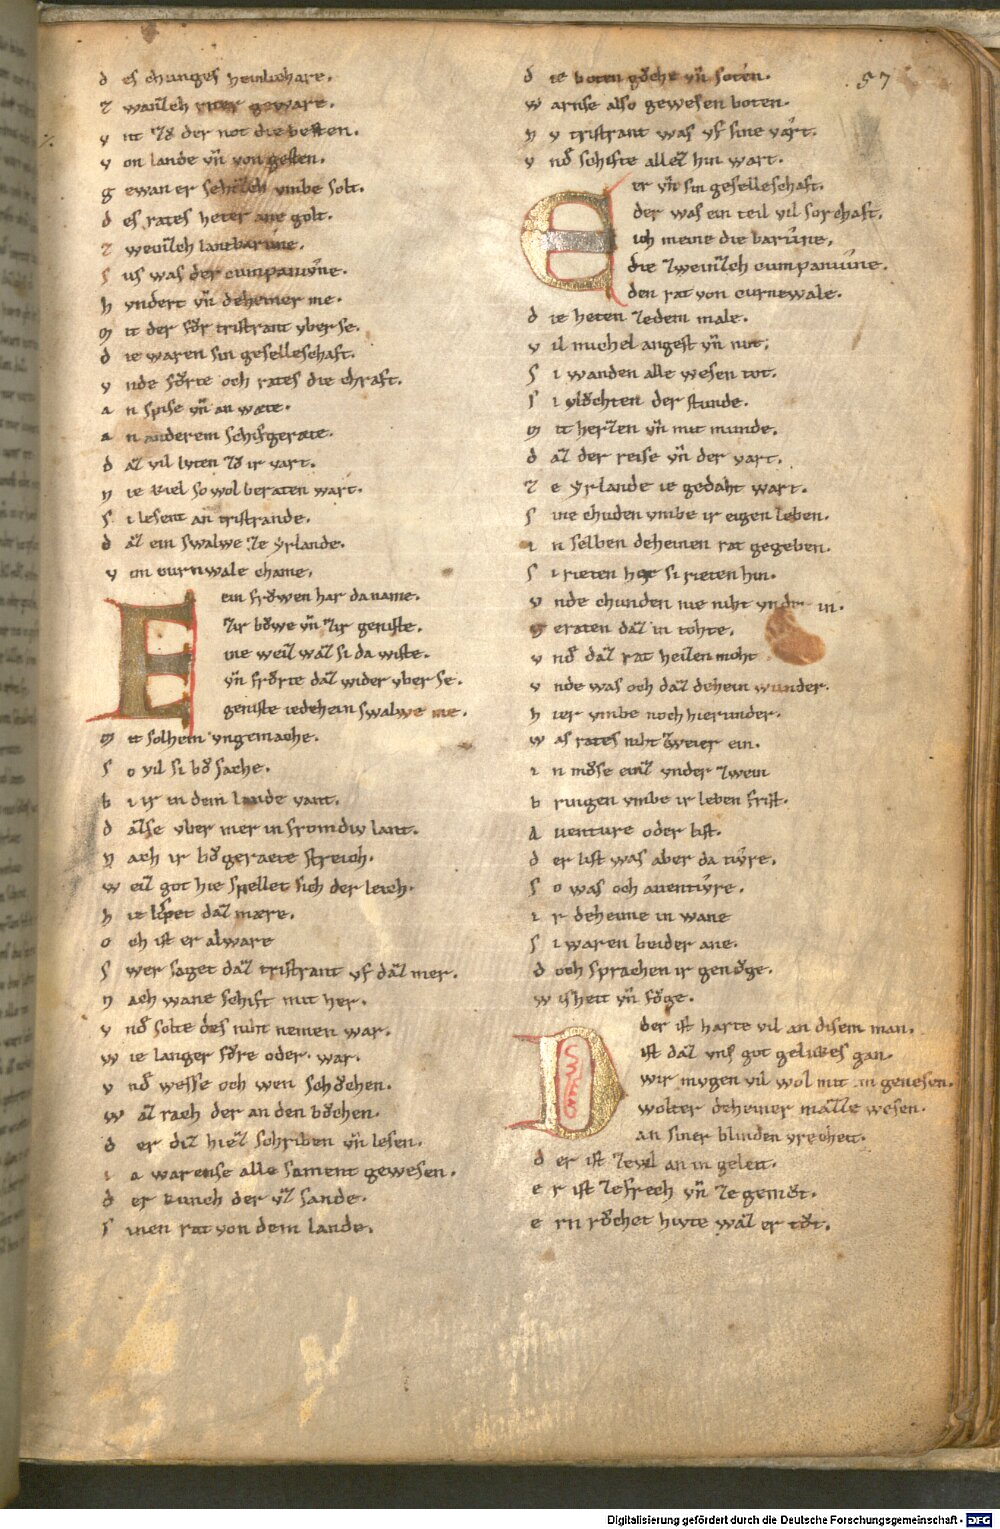 57
d es chunges heinlichare.
z wainzch riter geware.
v nt zů der not die besten.
v on lande vñ von gesten.
g ewan er sehzech vmbe solt.
d es rates heter ane golt.
z weinzch lantbarune.
s us was der cumpanẏne.
h vndert vñ deheiner me.
m it der fůr tristrant vber se.
d ie waren sin geselleschaft.
v nde fůrte och rates die chraft.
a n spise vñ an wæte.
a n anderem schifgeræte.
d az vil lvten zů ir vart.
n ie kiel so wol beraten wart.
s i lesent an tristrande.
d az ein swalwe ze ẏrlande.
v on curnwale chame.
E ein frŏwen har da name.
zir bŏwe vñ zir geniste.
ine weiz waz si da wiste.
vñ frŏrte daz wider vber se.
geniste iedehein swalwe nie.
m it solhem vngemache.
s o vil si bŏ sache.
b i ir in dem lande vant.
d azse vber mer in fromdiv lant.
n ach ir bŏgeraete streich.
w eiz got hie spellet sich der leich.
h ie lispet daz mære.
o ch ist er alware
s wer saget daz tristrant vf daz mer.
n ach wane schift mit her.
v nd solte des niht nemen war.
w ie langer fůre oder war.
v nd wesse och wen sůchen.
w az rach der an den bůchen.
d er diz hiez schriben vñ lesen.
i a warense alle sament gewesen.
d er kunch der vz sande.
s inen rat von dem lande.
d ie boten gŏche vñ soten.
w arnse also gewesen boten.
n v tristrant was vf sine vart.
v nd schifte allez hin wart.
E er vñ sin geselleschaft.
der was ein teil vil sorchaft.
ich meine die barûne,
die zweinzch cumpaniûne.
den rat von curnewale.
d ie heten zedem male.
v il michel angest vñ not.
s i wanden alle wesen tot.
s i vlůchten der stunde.
m it herzen vñ mit munde.
d az der reise vñ der vart.
z e ẏrlande ie gedaht wart.
s ine chuden vmbe ir eigen leben.
i n selben deheinen rat gegeben.
s i rieten her si rieten hin.
v nde chunden nie niht vnder in.
g eraten daz in tohte.
v nd daz rat heizen moht
v nde was och daz dehein wunder.
h ier vmbe noch hierunder.
w as rates niht zweier ein.
i n můse einz vnder zwein
b ringen vmbe ir leben frist.
a venture oder list.
d er list was aber da tivre.
s o was och auentivre.
i r deheine in wane
s i waren beider ane.
d och sprachen ir genůge.
w isheit vñ fůge.
D der ist harte vil an disem man.
ist daz vns got gelukes gan.
wir mvgen vil wol mit im genesen.
wolter deheiner mazze wesen.
an siner blinden vrecheit.
d er ist zewl an in geleit.
e r ist zefrech vñ zegemůt.
e rn růchet hivte waz er tůt.
Digitalisierung gefördert durch die Deutsche Forschungsgemeinschaft - DFG